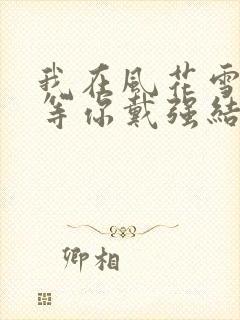 我在風花雪
等你戴强結
卿相